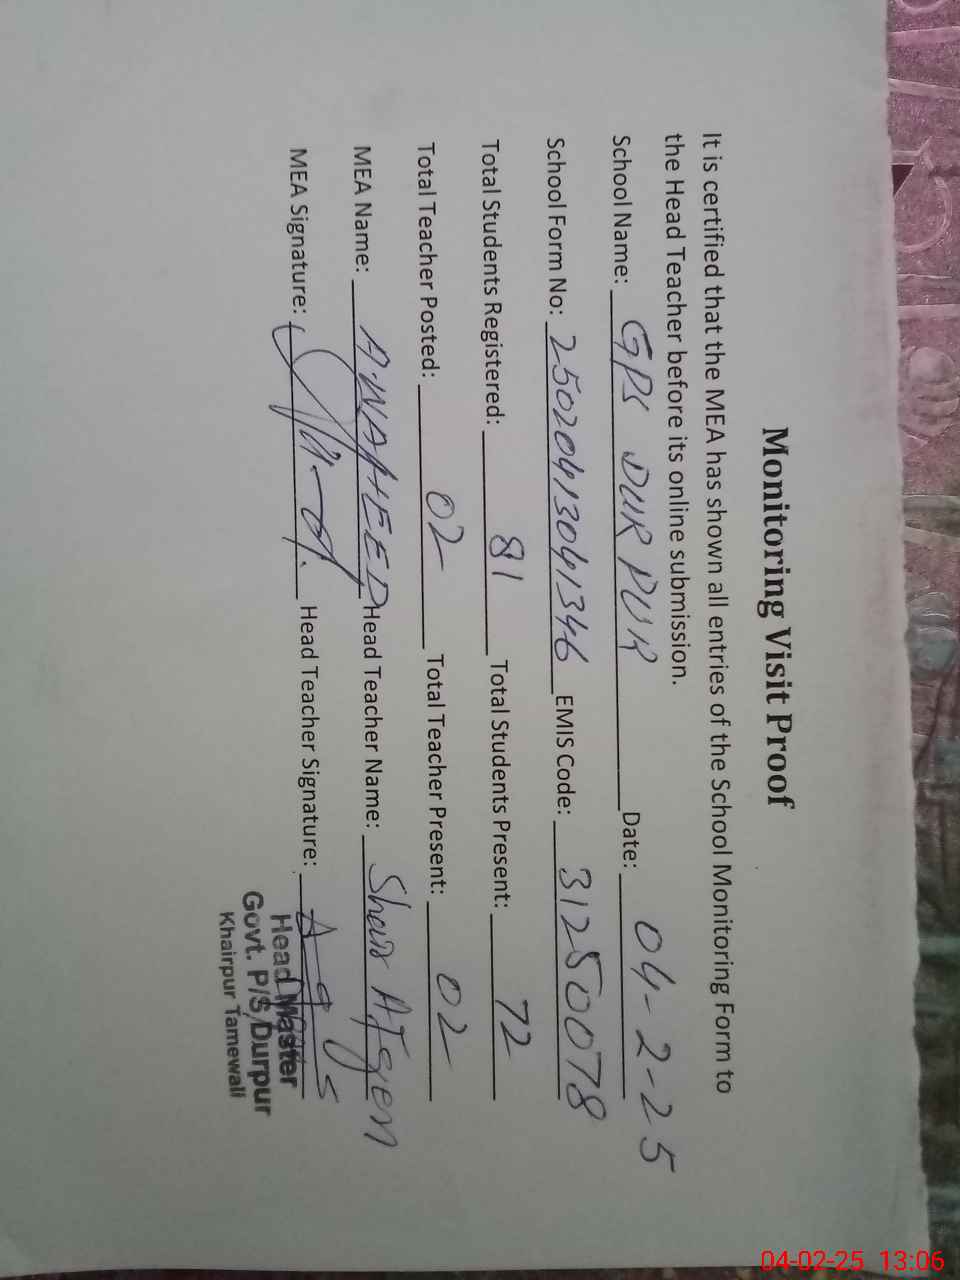 Monitoring Visit Proof
It is certified that the MEA has shown all entries of the School Monitoring Form to
the Head Teacher before its online submission.
School Name: GPS DURPUR Date: 04-2-25
School Form No: 25020413041346 EMIS Code: 31250078
Total Students Registered: 81 Total Students Present: 72
Total Teacher Posted: 02 Total Teacher Present: 02
MEA Name: A.WAHEED Head Teacher Name: Sher
MEA Signature: Head Teacher Signature:
Head Master
Govt. P/S Durpur
Khairpur Tamewali
04-02-25 13:06